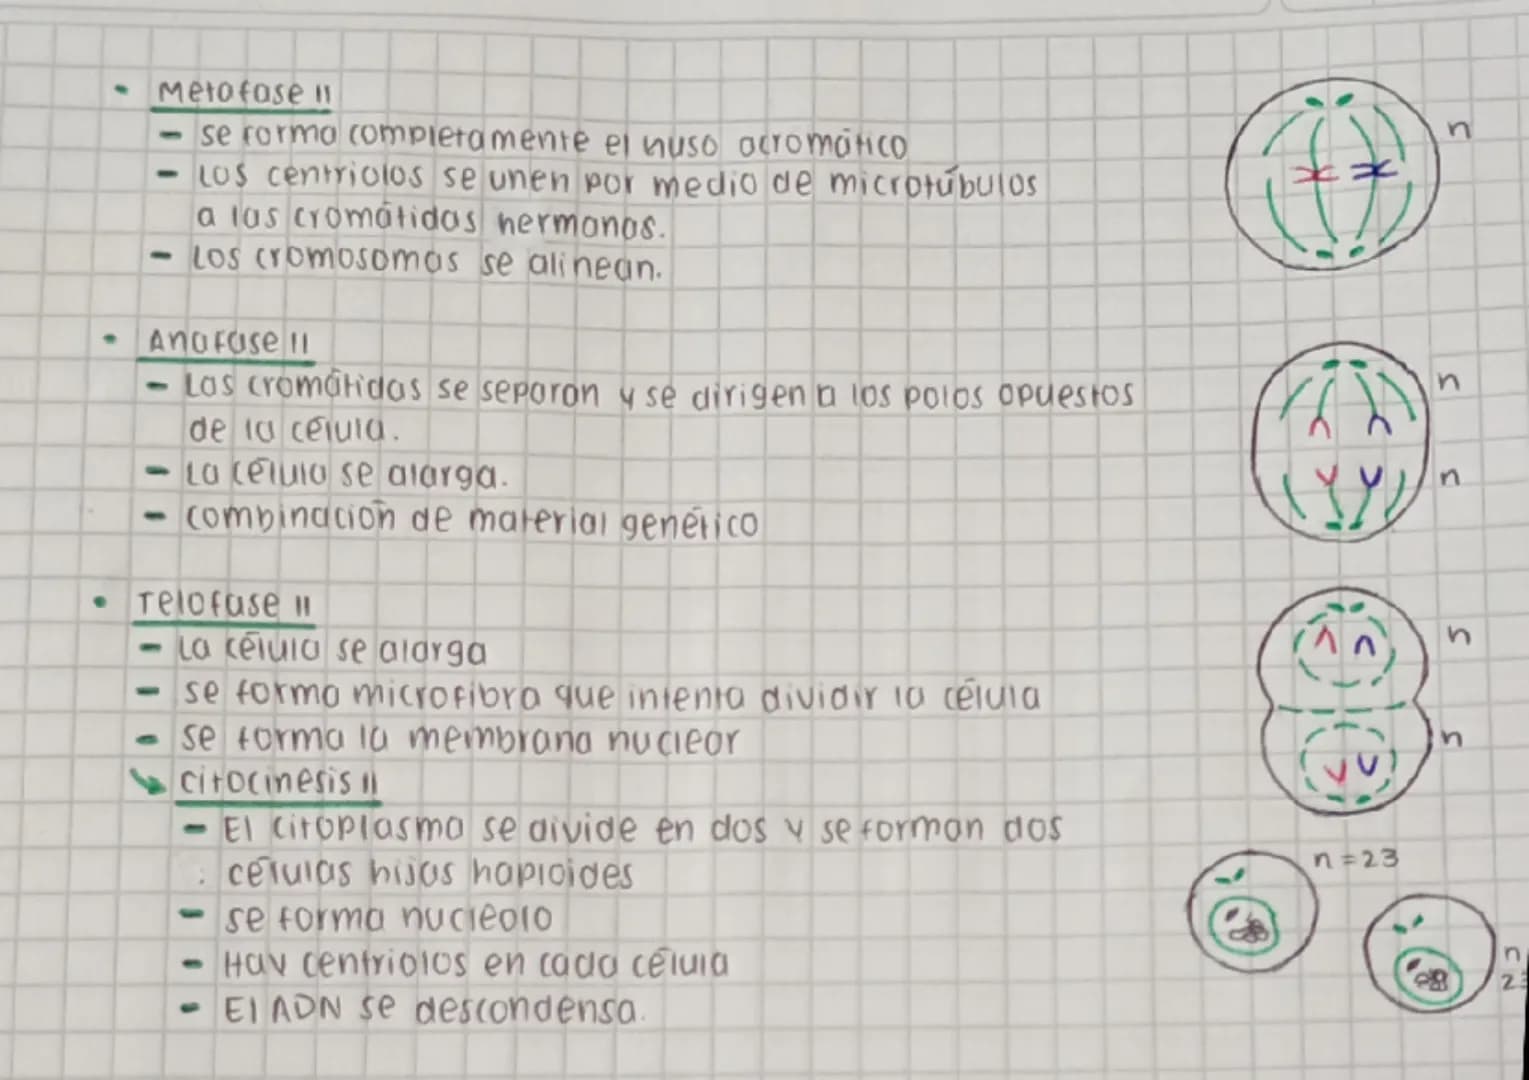 • Metafase II
- se forma completamente el huso acromático
- Los centriolos se unen por medio de microtúbulos
a las cromátidas hermanas.
- Los cromosomas se alinean.
n
• Anafase II
- Las cromátidas se separan y se dirigen a los polos opuestos
de la célula.
- La célula se alarga.
- combinación de material genético
n
n
• Telofase II
- La célula se alarga
- se forma microfibra que intenta dividir la célula
- se forma la membrana nuclear
n
n
citocinesis II
- El citoplasma se divide en dos y se forman dos
células hijas haploides
- se forma nucléolo
- Hay centriolos en cada célula
- El ADN se descondensa.
n = 23
n
23